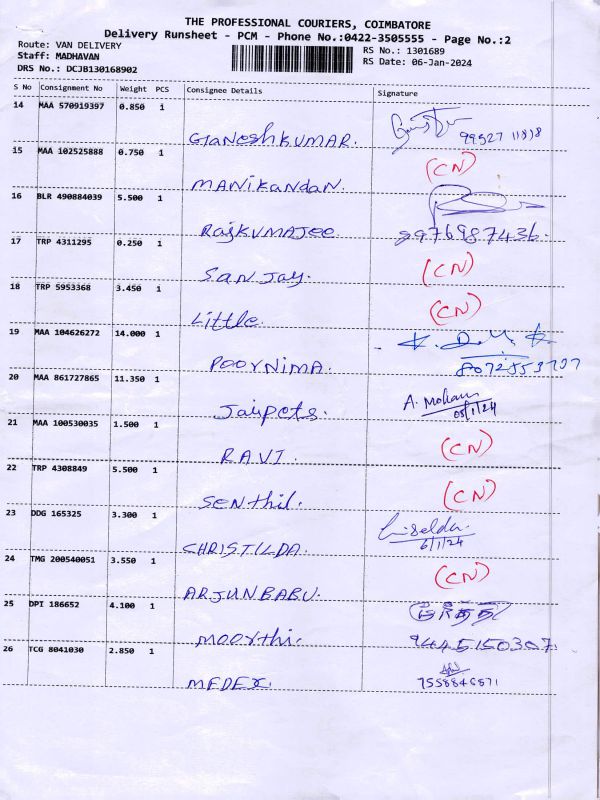 THE PROFESSIONAL COURIERS, COIMBATORE
Delivery Runsheet - PCM - Phone No.:0422-3505555 - Page No.:2
Route: VAN DELIVERY
RS No.: 1301689
Staff: MADHAVAN
RS Date: 06-Jan-2024
DRS No.: DCJB130168902
S No Consignment No Weight PCS Consignee Details Signature
14 MAA 570919397 0.850 1
GaneshKUMAR. 99527 11818
15 MAA 102525888 0.750 1
MANiKandaN. (CN)
16 BLR 490884039 5.500 1
RajKUMAJee 9976987436.
17 TRP 4311295 0.250 1
SANJay. (CN)
18 TRP 5953368 3.450 1
Little (CN)
19 MAA 104626272 14.000 1
POORNIMA.
20 MAA 861727865 11.350 1
Jaipets. A. Mohan
05/1/24
21 MAA 100530035 1.500 1
RAVI. (CN)
22 TRP 4308849 5.500 1
Senthil. (CN)
23 DDG 165325 3.300 1
CHRISTILDA 6/1/24
24 TMG 200540051 3.550 1
ARJUNBABU. (CN)
25 DPI 186652 4.100 1
Moorthi. 9445150307.
26 TCG 8041030 2.850 1
MEDEX. 7558846871